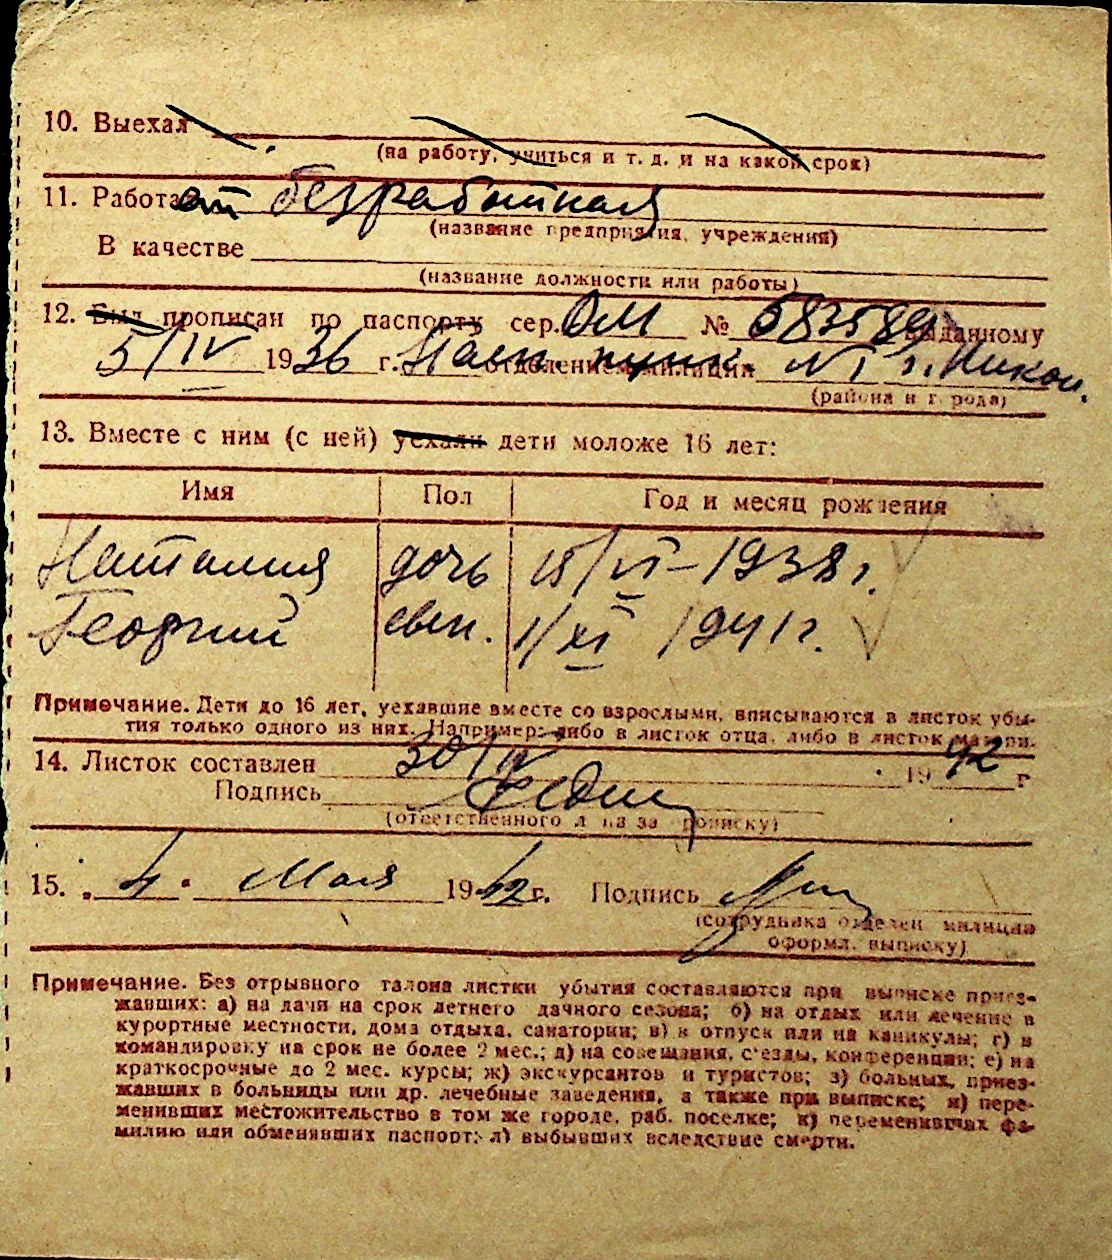 10. Выехал
(на работу, учиться и т. д. и на какой срок)
11. Работает безработная
(название предприятия, учреждения)
В качестве
(название должности или работы)
12. Был прописан по паспорту сер. ОМ № 583589 выданному
5/IV 1936 г. отделением милиции №1 г. Никол.
(района и города)
13. Вместе с ним (с ней) уехали дети моложе 16 лет:
Имя Пол Год и месяц рождения
Наталия дочь 18/VI-1938г.
Георгий 1/XI 1941г.
Примечание. Дети до 16 лет, уехавшие вместе со взрослыми, вписываются в листок убы-
тия только одного из них. Например: либо в листок отца, либо в листок матери.
14. Листок составлен 30/IV 1942 г
Подпись
(ответственного лица за прописку)
15. „4" Мая 1942 г. Подпись
(сотрудника отделен. милиции
оформл. выписку)
Примечание. Без отрывного талона листки убытия составляются при выписке приез-
жавших: а) на дачи на срок летнего дачного сезона; б) на отдых или лечение в
курортные местности, дома отдыха, санатории; в) в отпуск или на каникулы; г) в
командировку на срок не более 2 мес.; д) на совещания, съезды, конференции; е) на
краткосрочные до 2 мес. курсы; ж) экскурсантов и туристов; з) больных, приез-
жавших в больницы или др. лечебные заведения, а также при выписке; и) пере-
менивших местожительство в том же городе, раб. поселке; к) переменивших фа-
милию или обменявших паспорт; л) выбывших вследствие смерти.